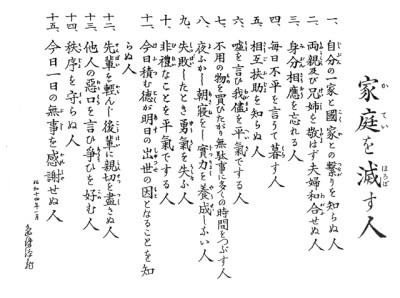 家庭を滅す人
一、自分の一家と國家との繋りを知らぬ人
二、両親及び兄姉を敬はず夫婦和合せぬ人
三、身分相應を忘れる人
四、毎日不平を言うて暮す人
五、相互扶助を知らぬ人
六、嘘を言ひ我儘を平氣でする人
七、不用の物を買ひたがり無駄事に多くの時間をつぶす人
八、夜ふかし朝寝をし實力を養成しない人
九、失敗したとき勇氣を失ふ人
十、非禮なことを平氣でする人
十一、今日積む德が明日の出世の因となることを知
らぬ人
十二、先輩を輕んじ後輩に親切を盡さぬ人
十三、他人の惡口を言ひ爭ひを好む人
十四、秩序を守らぬ人
十五、今日一日の無事を感謝せぬ人
昭和十四年一月